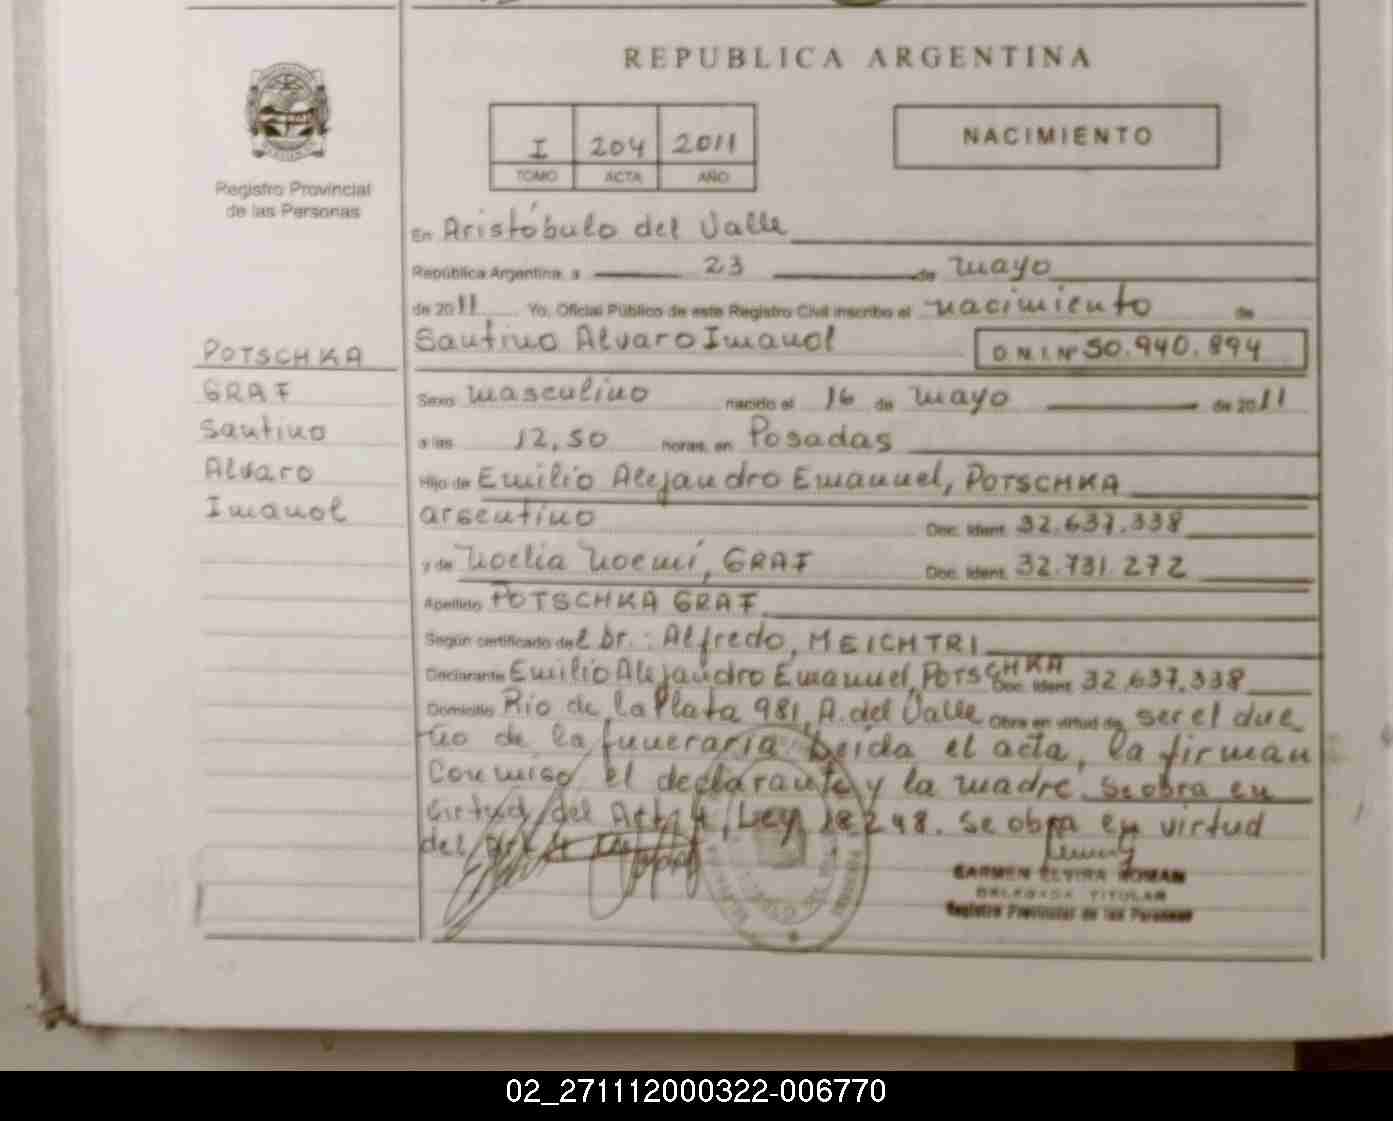 REPUBLICA ARGENTINA
I 204 2011
TOMO ACTA AÑO
NACIMIENTO
Registro Provincial
de las Personas
En Aristóbulo del Valle
República Argentina, a 23 de mayo
de 2011 Yo, Oficial Público de este Registro Civil inscribo el nacimiento de
Santino Alvaro Imanol D.N.I. Nº 50.940.894
Sexo masculino nacido el 16 de mayo de 2011
a las 12,50 horas, en Posadas
Hijo de Emilio Alejandro Emanuel, POTSCHKA
argentino Doc. Ident. 32.637.338
y de Noelia Noemí, GRAF Doc. Ident. 32.731.272
Apellido POTSCHKA GRAF
Según certificado del Dr.: Alfredo, MEICHTRI
Declarante Emilio Alejandro Emanuel, POTSCHKA Doc. Ident. 32.637.338
Domicilio Rio de la Plata 981, A. del Valle Obra en virtud de ser el
de la Leída el acta, la firman
Conmigo el declarante y la madre. Se obra en
virtud del Art. 4, Ley 18248. Se obra en virtud
del
CARMEN ELVIRA ROMAN
DELEGADA TITULAR
Registro Provincial de las Personas
POTSCHKA
GRAF
Santino
Alvaro
Imanol
02_271112000322-006770